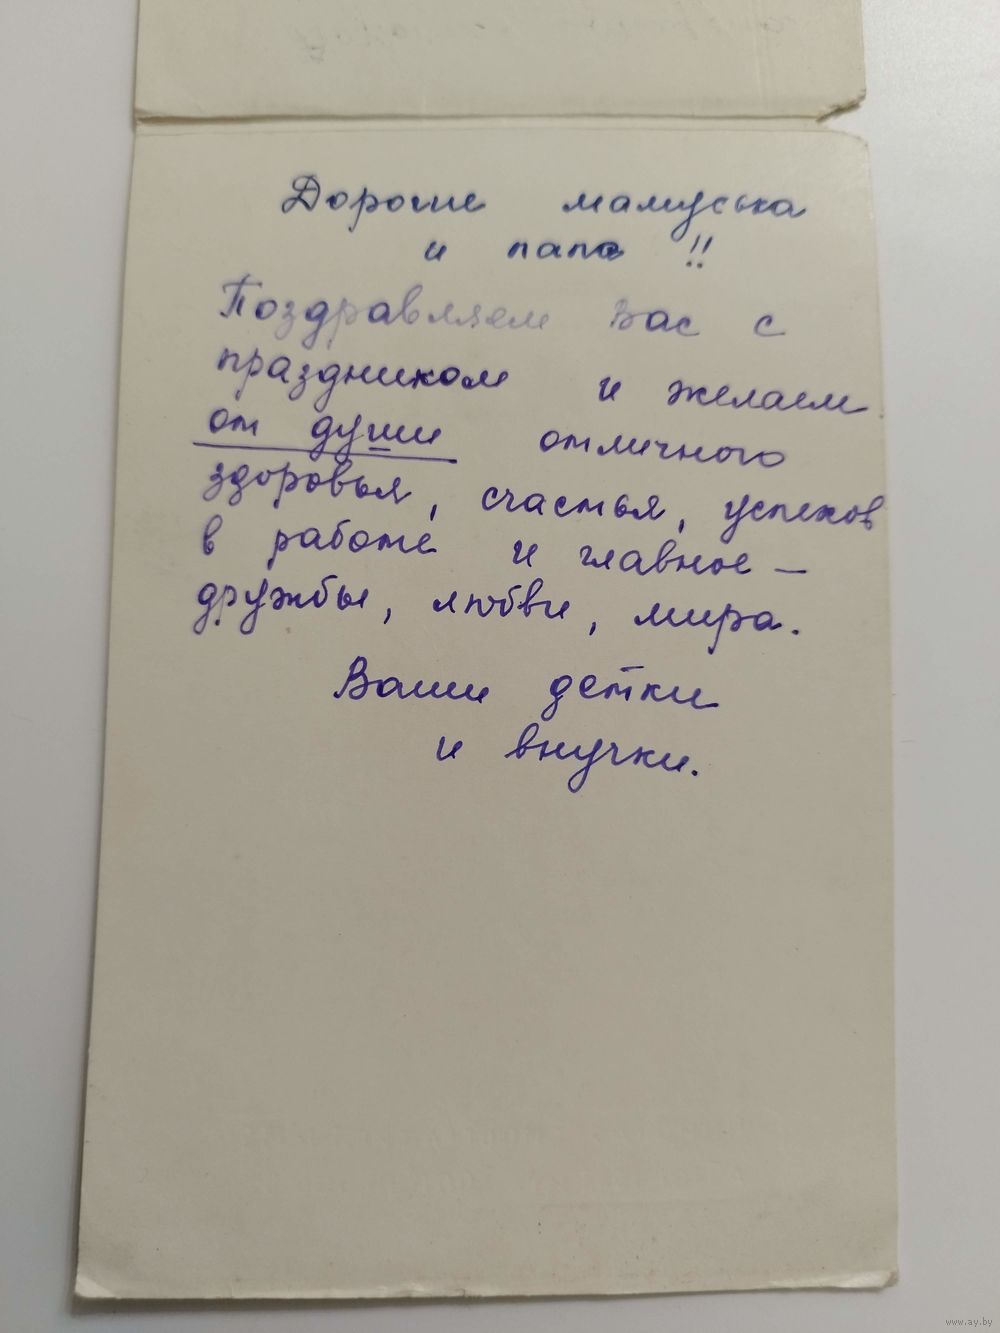 Дорогие мамуська
и папа !!
Поздравляем Вас с
праздником и желаем
от души отличного
здоровья, счастья, успехов
в работе и главное –
дружбы, любви, мира.
Ваши детки
и внучки.
www.ay.by